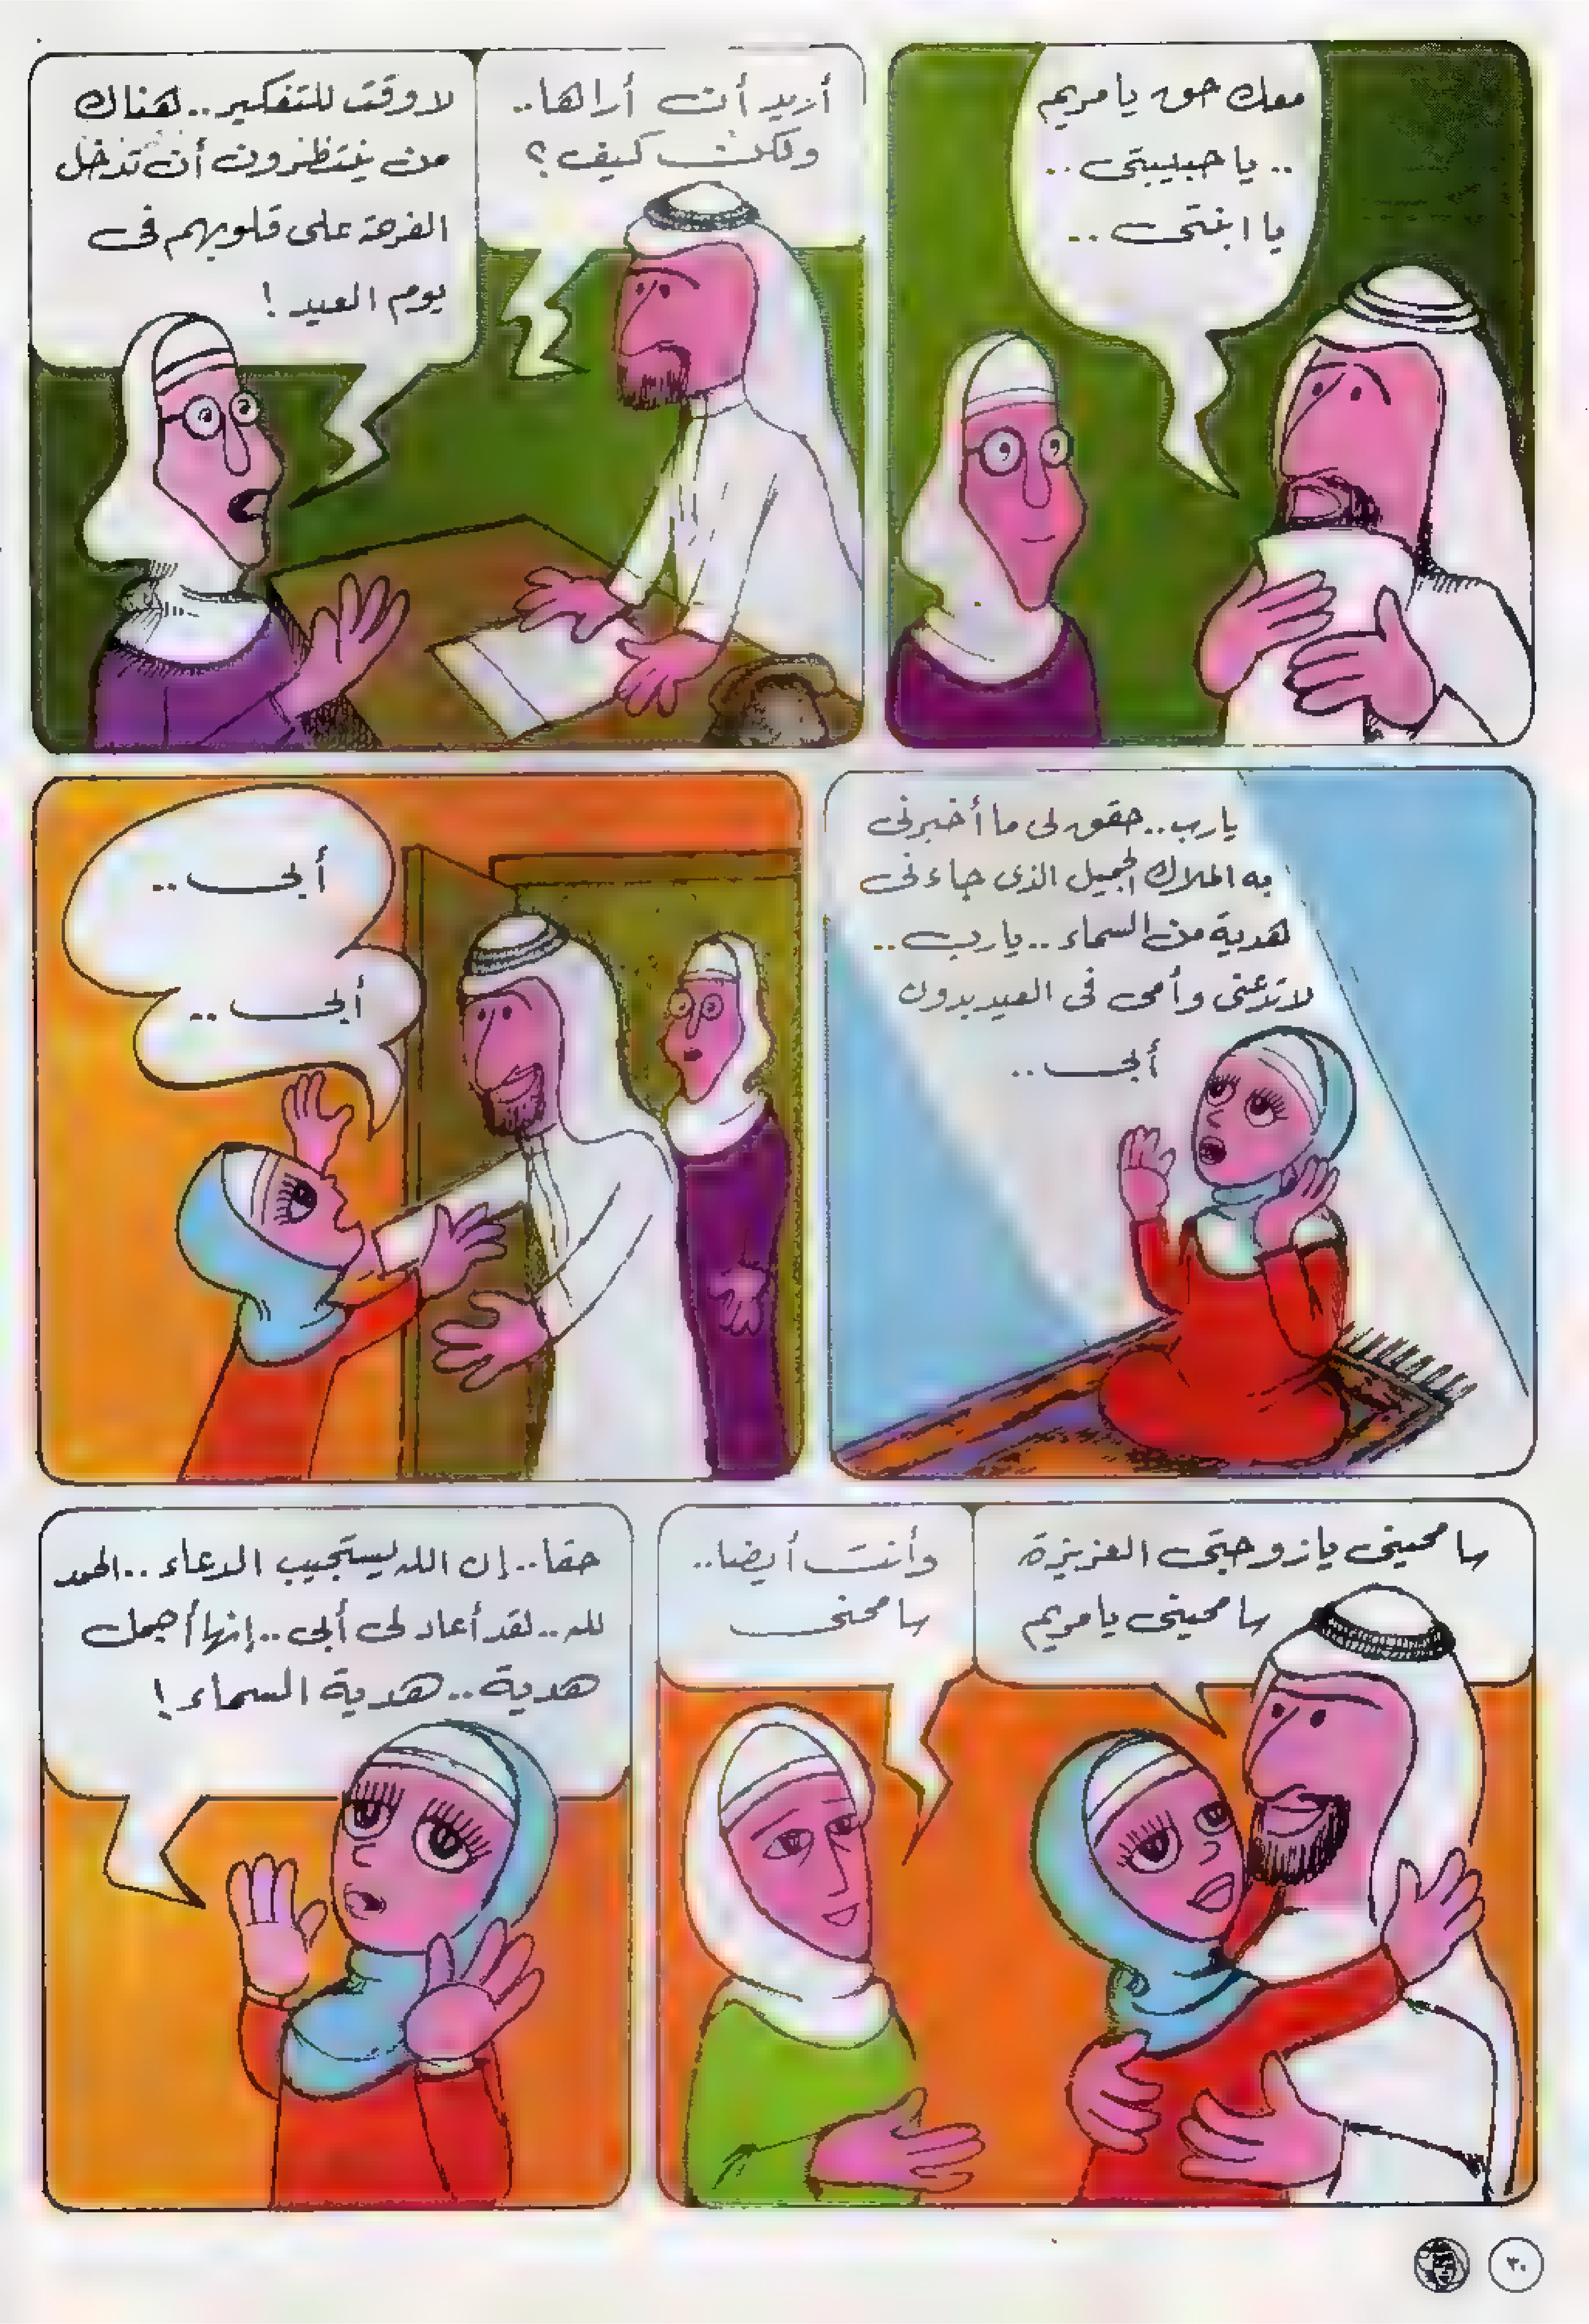 معك حق يا مريم
.. يا حبيبتى ..
يا ابنتى ..
أريد أن أراها..
ولكن كيف؟
لا وقت للتفكير.. هناك
من ينتظرون أن تدخل
الفرحة على قلوبهم فى
يوم العيد!
يارب.. حقق لى ما أخبرنى
به الملاك الجميل الذى جاءنى
هدية من السماء.. يارب ..
لا تدعنى وأمى فى العيد بدون
أبى ..
أبى ..
أبى ..
سامحينى يا زوجتى العزيزة
سامحينى يا مريم
وأنت أيضا..
سامحنى
حقا.. إن الله ليستجيب الدعاء.. الحمد
لله.. لقد أعاد لى أبى.. إنها أجمل
هدية.. هدية السماء!
٣٠